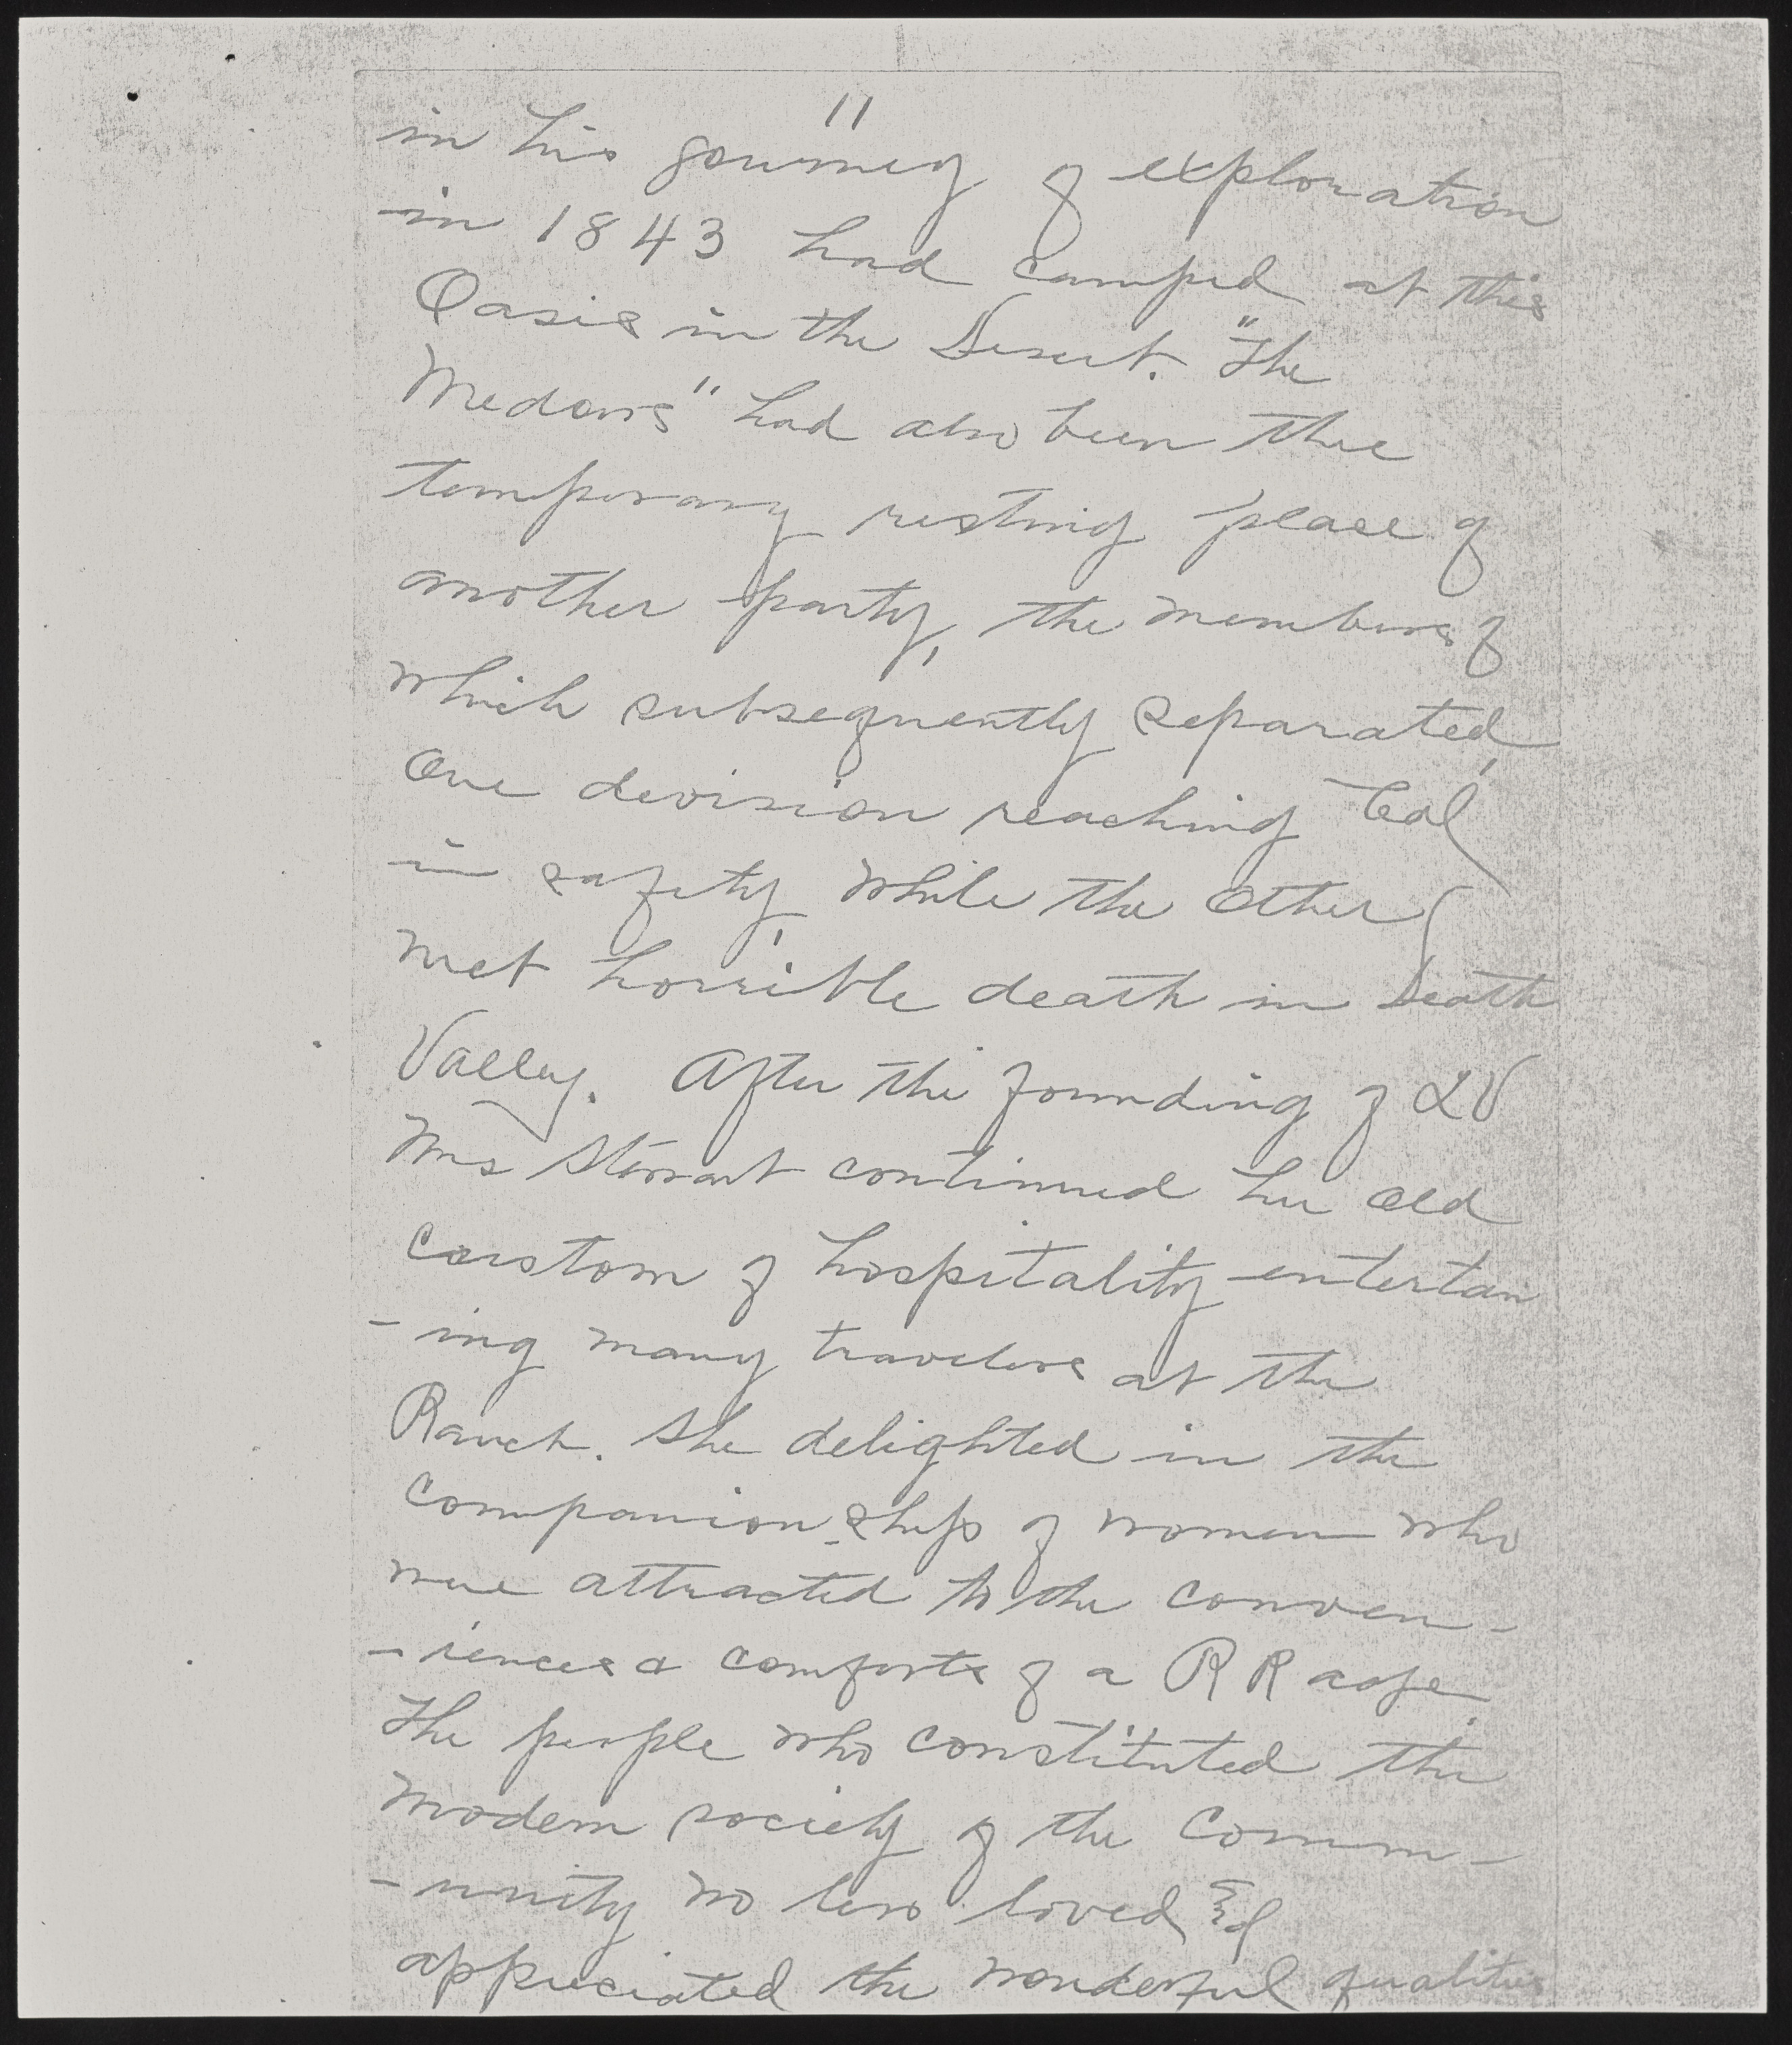 11
in his journey of exploration
in 1843 had camped at this
Oasis in the Desert. "The
Medows" had also been the
temporary resting place of
another party, the members of
which subsequently separated,
one devision reaching Cal
in safety, while the other
met horrible death in Death
Valley. After the founding of LV
Mrs Stewart continued her old
custom of hospitality entertain
- ing many travelers at the
Ranch. She delighted in the
companion-ship of women who
were attracted to the conven-
- iences & comforts of a RR
The people who constituted the
modern society of the Comm-
- unity no less loved &
appreciated the wonderful qualities